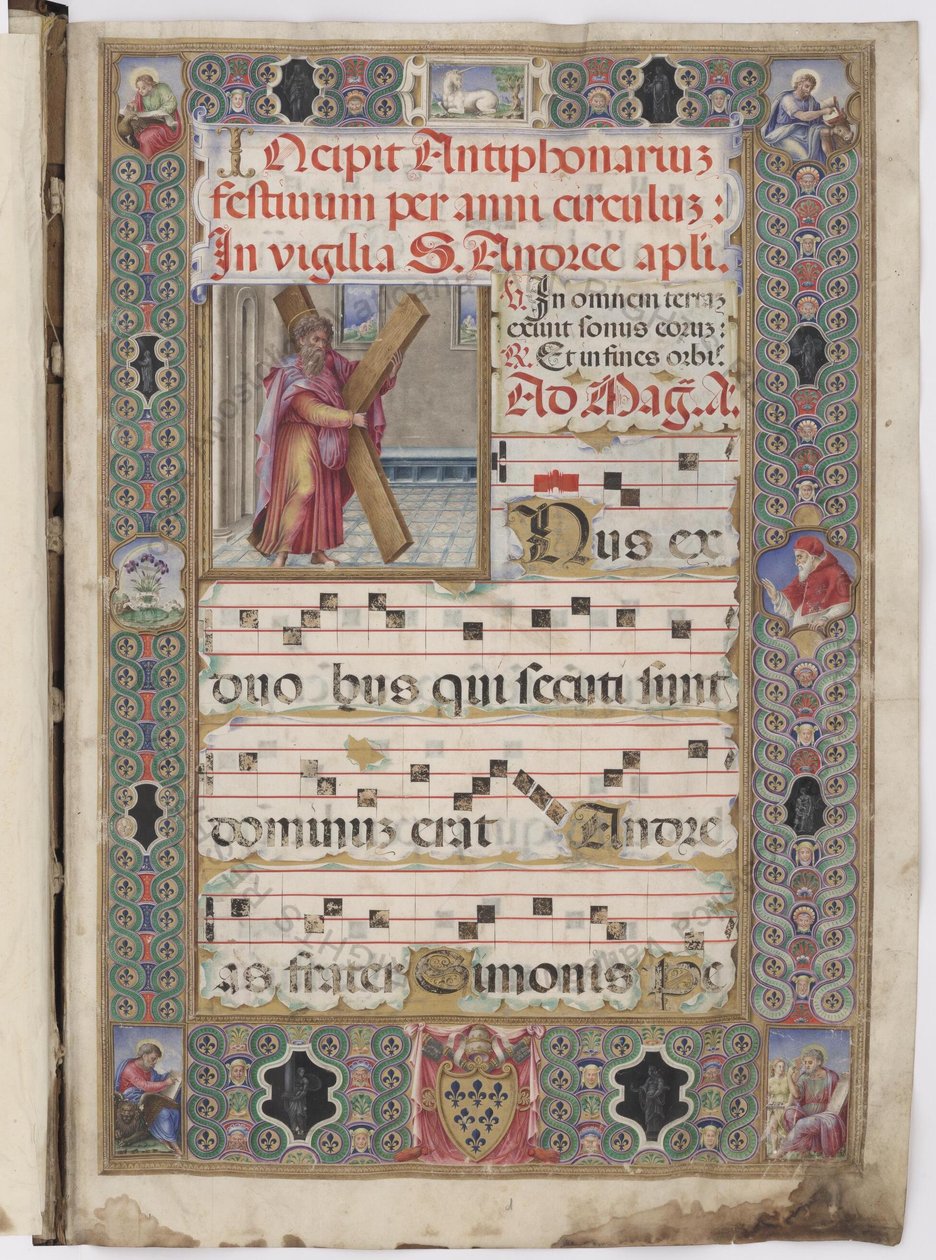 INcipit Antiphonariuz
festiuum per anni circuluz :
In vigilia S. Andree apli.
V. In omnem terraz
exiuit sonus eoruz :
R. Et in fines orbis.
Ad Mag. A.
Nus ex
duo bus qui secuti sunt
dominuz erat Andre
as frater Simonis Pe
d